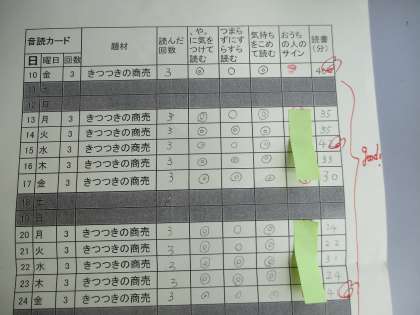 音読カード 題材 読んだ回数 、や。に気をつけて読む つまらずにすらすら読む 気持ちをこめて読む おうちの人のサイン 読書(分)
日 曜日 回数
10 金 3 きつつきの商売 3 ◎ ○ ◎
11 土
12 日
13 月 3 きつつきの商売 3 ◎ ○ ◎ 35
14 火 3 きつつきの商売 3 ◎ ◎ ◎ 35
15 水 3 きつつきの商売 3 ◎ ○ ◎
16 木 3 きつつきの商売 3 ◎ ◎ ◎ 33
17 金 3 きつつきの商売 3 ◎ ◎ ◎ 30
good!
18 土
19 日
20 月 3 きつつきの商売 3 ◎ ◎ ◎ 24
21 火 3 きつつきの商売 3 ◎ ◎ ◎ 22
22 水 3 きつつきの商売 3 ◎ ◎ ◎ 31
23 木 3 きつつきの商売 3 ◎ ◎ ◎ 24
24 金 3 きつつきの商売 3 ◎ ◎ ◎